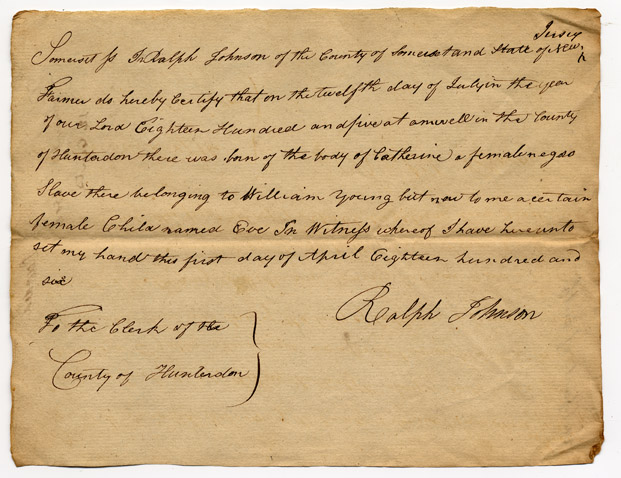 Jersey
Somerset ss I Ralph Johnson of the County of Somerset and State of New
Farmer do hereby Certify that on the twelfth day of July in the year
of our Lord Eighteen Hundred and five at amwell in the County
of Hunterdon there was born of the body of Catherine a female negro
Slave there belonging to William Young but now to me a certain
female Child named Eve In Witness whereof I have hereunto
set my hand this first day of April Eighteen hundred and
six
Ralph Johnson
To the Clerk of the
County of Hunterdon